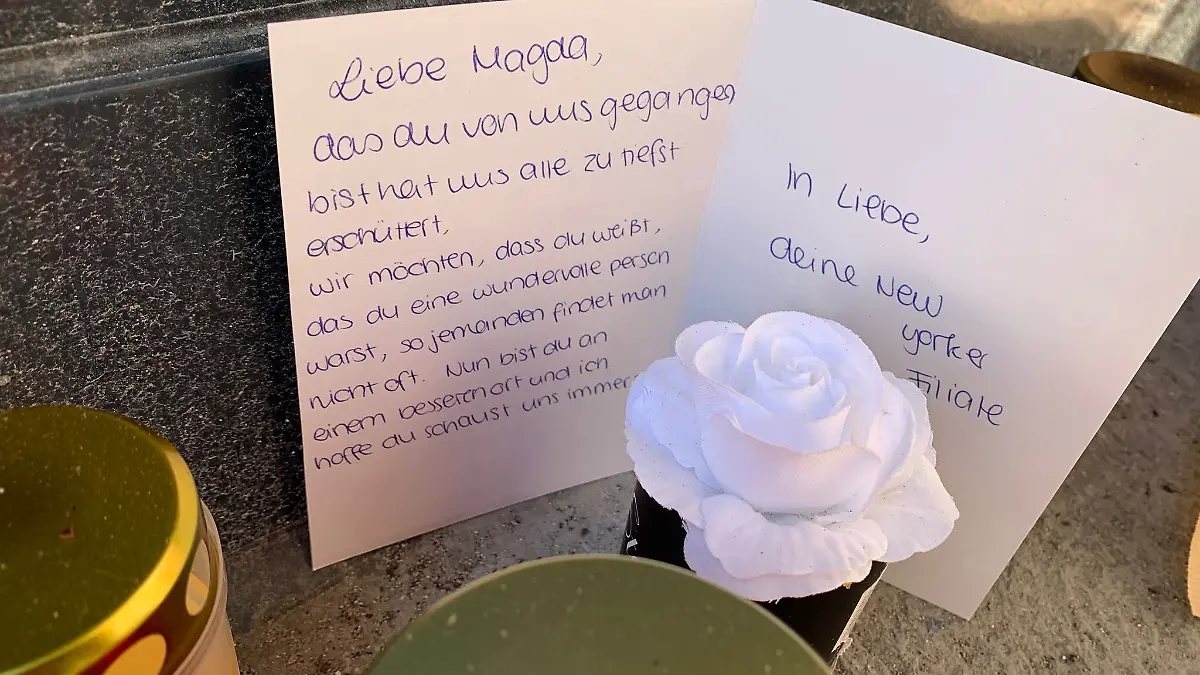 Liebe Magda,
das du von uns gegangen
bist hat uns alle zu tiefst
erschüttert,
wir möchten, dass du weißt,
das du eine wundervolle person
warst, so jemanden findet man
nicht oft. Nun bist du an
einem besseren ort und ich
hoffe du schaust uns immer
In Liebe,
deine New
yorker
Filiale